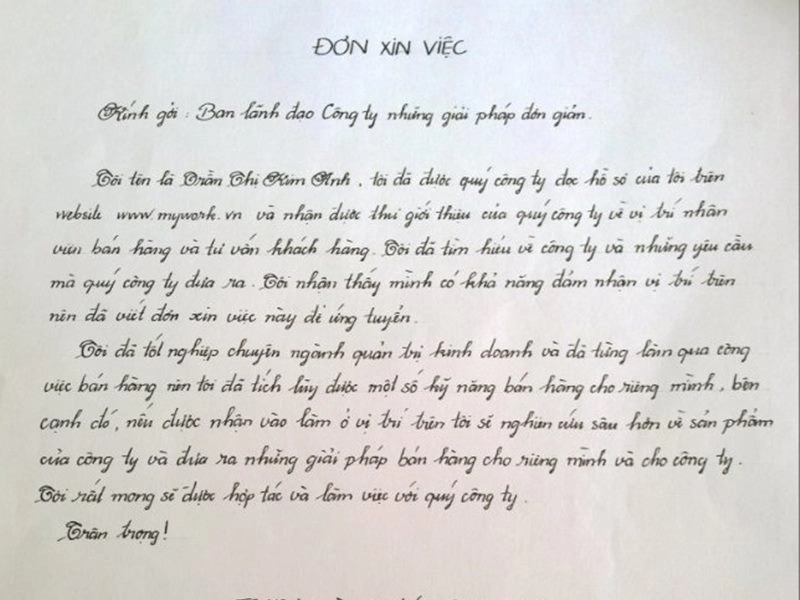 ĐƠN XIN VIỆC
Kính gởi : Ban lãnh đạo Công ty những giải pháp đơn giản.
Tôi tên là Trần Thị Kim Anh, tôi đã được quý công ty đọc hồ sơ của tôi trên
website www.mywork.vn và nhận được thư giới thiệu của quý công ty về vị trí nhân
viên bán hàng và tư vấn khách hàng. Tôi đã tìm hiểu về công ty và những yêu cầu
mà quý công ty đưa ra. Tôi nhận thấy mình có khả năng đảm nhận vị trí trên
nên đã viết đơn xin việc này để ứng tuyển.
Tôi đã tốt nghiệp chuyên ngành quản trị kinh doanh và đã từng làm qua công
việc bán hàng nên tôi đã tích lũy được một số kỹ năng bán hàng cho riêng mình, bên
cạnh đó, nếu được nhận vào làm ở vị trí trên tôi sẽ nghiên cứu sâu hơn về sản phẩm
của công ty và đưa ra những giải pháp bán hàng cho riêng mình và cho công ty.
Tôi rất mong sẽ được hợp tác và làm việc với quý công ty.
Trân trọng!